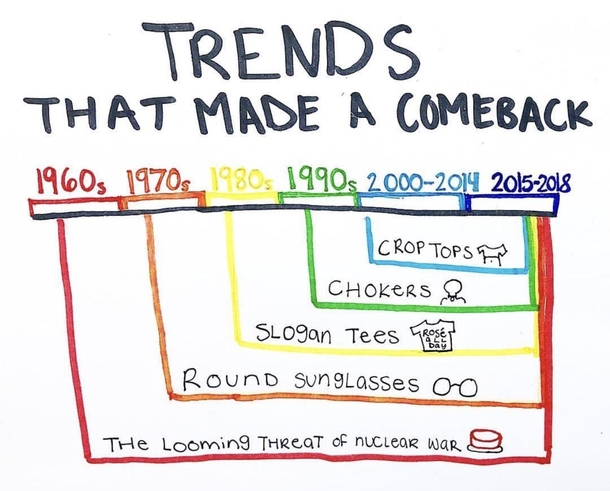 TRENDS
THAT MADE A COMEBACK
1960s 1970s 1980s 1990s 2000-2014 2015-2018
CROP TOPS
CHOKERS
SLOgan Tees ROSÉ ALL Day
ROUND SUNgLASSES
THE LOOMINg THREAT OF NUCLEAR WAR